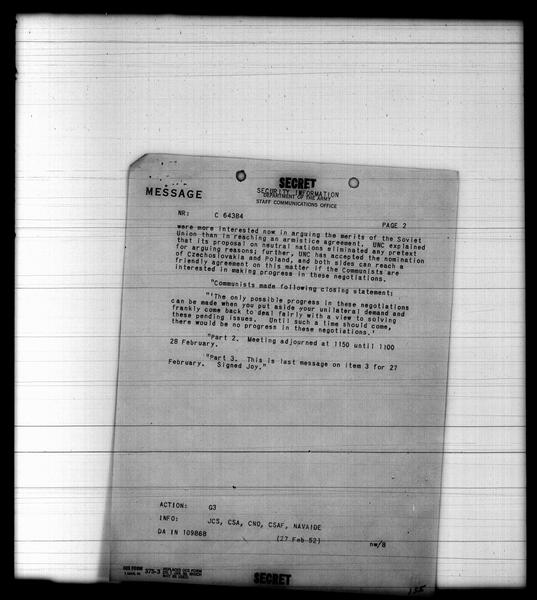 SECRET
SECURITY INFORMATION
DEPARTMENT OF THE ARMY
STAFF COMMUNICATIONS OFFICE
MESSAGE
NR: C 64384 PAGE 2
were more interested now in arguing the merits of the Soviet
Union than in reaching an armistice agreement, UNC explained
that its proposal on neutral nations eliminated any pretext
for arguing reasons; further, UNC has accepted the nomination
of Czechoslovakia and Poland, and both sides can reach a
friendly agreement on this matter if the Communists are
interested in making progress in these negotiations.
"Communists made following closing statement;
"'The only possible progress in these negotiations
can be made when you put aside your unilateral demand and
frankly come back to deal fairly with a view to solving
these pending issues. Until such a time should come,
there would be no progress in these negotiations.'
"Part 2. Meeting adjourned at 1150 until 1100
28 February.
"Part 3. This is last message on item 3 for 27
February. Signed Joy."
ACTION: G3
INFO: JCS, CSA, CNO, CSAF, NAVAIDE
DA IN 109868 (27 Feb 52) nw/8
375-3
SECRET
135